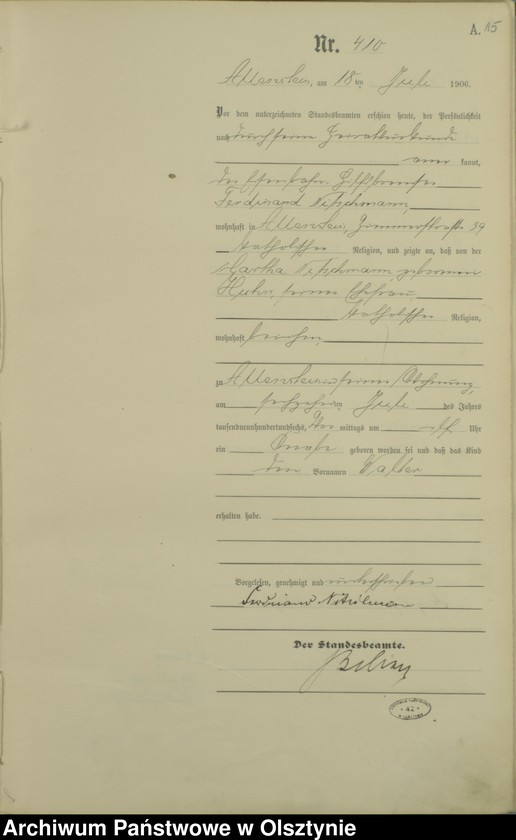 A. 15
Nr. 410
Allenstein, am 18ten Juli 1906.
Vor dem unterzeichneten Standesbeamten erschien heute, der Persönlichkeit
nach durch seine Heiratsurkunde
aner kannt,
der Eisenbahn Hilfsbremser
Ferdinand Nitschmann,
wohnhaft in Allenstein, Zimmerstraße 39
katholischer Religion, und zeigte an, daß von der
Martha Nitschmann geborenen
Huhn, seiner Ehefrau,
katholischer Religion,
wohnhaft bei ihm,
zu Allenstein in seiner Wohnung,
am sechzehnten Juli des Jahres
tausendneunhundertundsechs, Vor mittags um elf Uhr
ein Knabe geboren worden sei und daß das Kind
den Vornamen Walter
erhalten habe.
Vorgelesen, genehmigt und unterschrieben
Ferdinand Nitschmann
Der Standesbeamte.
Archiwum Państwowe w Olsztynie